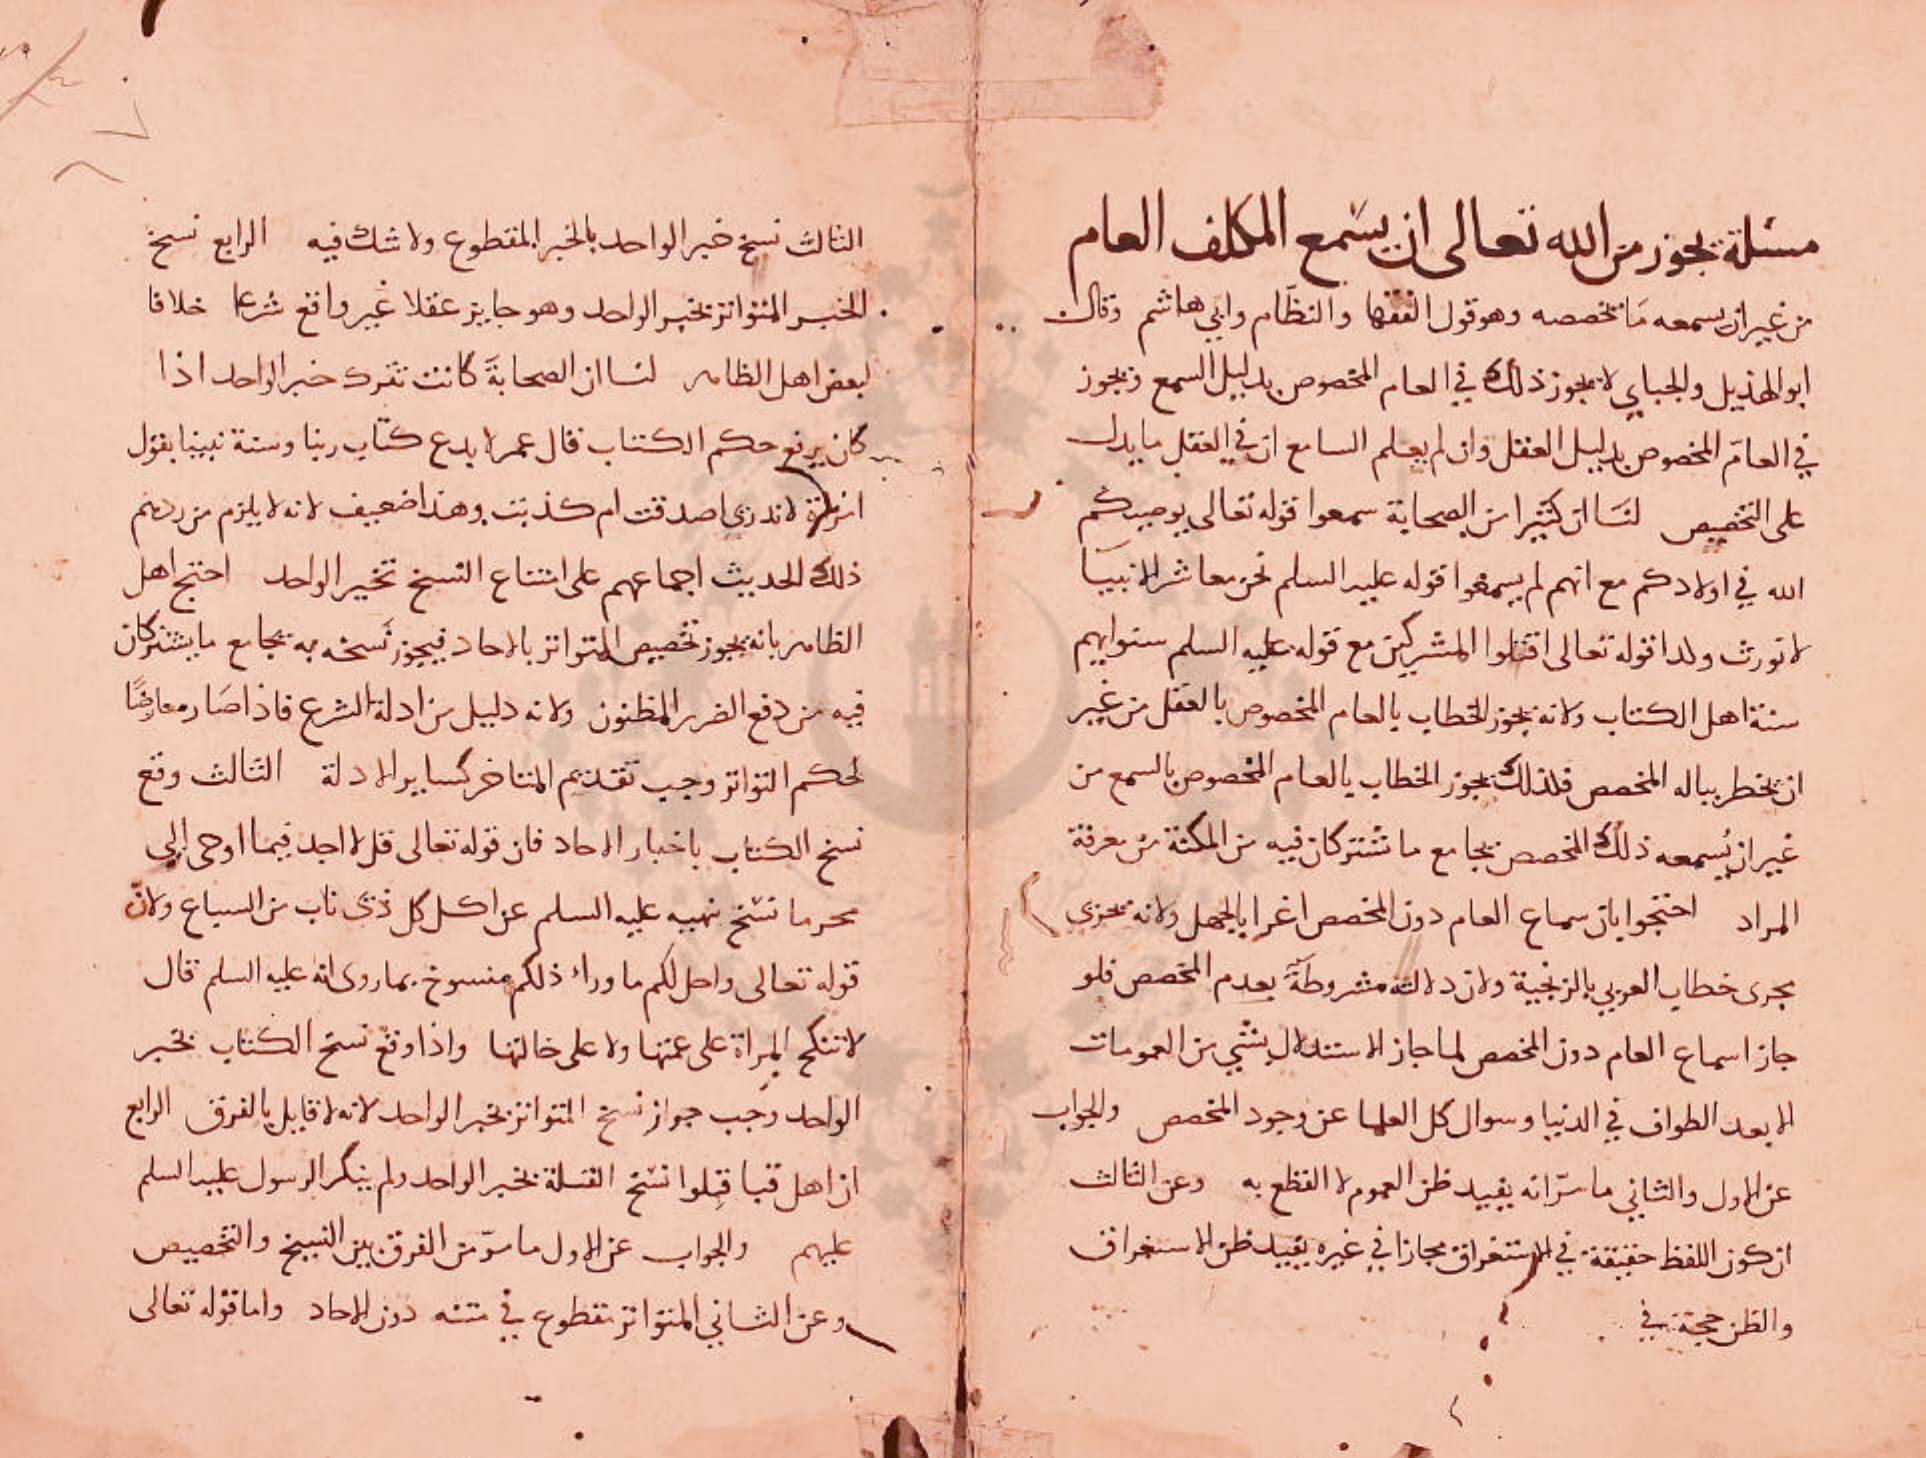 مسئلة يجوز من الله تعالى ان يسمع المكلف العام
من غير ان يسمعه ما يخصصه وهو قول الفقها والنظام وابي هاشم وقال
ابو الهذيل والجباي لا يجوز ذلك في العام المخصوص بدليل السمع ويجوز
في العام المخصوص بدليل العقل وان لم يعلم السامع ان في العقل ما يدل
على التخصيص لنا ان كثيرا من الصحابة سمعوا قوله تعالى يوصيكم
الله في اولادكم مع انهم لم يسمعوا قوله عليه السلم نحن معاشر الانبيا
لا نورث ولذا قوله تعالى اقتلوا المشركين مع قوله عليه السلم سنوا بهم
سنة اهل الكتاب ولانه يجوز الخطاب بالعام المخصوص بالعقل من غير
ان يخطر بباله المخصص فلذلك يجوز الخطاب بالعام المخصوص بالسمع من
غير ان يسمعه ذلك المخصص بجامع ما تشتركان فيه من المكنة من معرفة
المراد احتجوا بان سماع العام دون المخصص اغرا بالجهل ولانه يجري
مجرى خطاب العربي بالزنجية ولان دلالته مشروطة بعدم المخصص فلو
جاز اسماع العام دون المخصص لما جاز الاستدلال بشي من العمومات
الا بعد الطواف في الدنيا وسوال كل العلما عن وجود المخصص والجواب
عن الاول والثاني ما مر انه يفيد ظن العموم لا القطع به وعن الثالث
ان كون اللفظ حقيقة في الاستغراق مجازا في غيره يفيد ظن الاستغراق
والظن حجة في
الثالث نسخ خبر الواحد بالخبر المقطوع ولا شك فيه الرابع نسخ
الخبر المتواتر بخبر الواحد وهو جايز عقلا غير واقع شرعا خلافا
لبعض اهل الظاهر لنا ان الصحابة كانت تترك خبر الواحد اذا
كان يرفع حكم الكتاب قال عمر لا يدع كتاب ربنا وسنة نبينا بقول
امرأة لا ندري اصدقت ام كذبت وهذا ضعيف لانه لا يلزم من ردهم
ذلك الحديث اجماعهم على امتناع النسخ بخبر الواحد احتج اهل
الظاهر بانه يجوز تخصيص المتواتر بالاحاد فيجوز نسخه به بجامع ما يشتركان
فيه من دفع الضرر المظنون ولانه دليل من ادلة الشرع فاذا صار معارضا
لحكم التواتر وجب تقديم المتاخر كساير الادلة الثالث وقع
نسخ الكتاب باخبار الاحاد فان قوله تعالى قل لا اجد فيما اوحى الي
محرما نسخ بنهيه عليه السلم عن اكل كل ذي ناب من السباع ولان
قوله تعالى واحل لكم ما وراء ذلكم منسوخ بما روى انه عليه السلم قال
لا تنكح المراة على عمتها ولا على خالتها واذا وقع نسخ الكتاب بخبر
الواحد وجب جواز نسخ المتواتر بخبر الواحد لانه لا قايل بالفرق الرابع
ان اهل قبا قبلوا نسخ القبلة بخبر الواحد ولم ينكر الرسول عليه السلم
عليهم والجواب عن الاول ما مر من الفرق بين النسخ والتخصيص
وعن الثاني المتواتر مقطوع في متنه دون الاحاد واما قوله تعالى